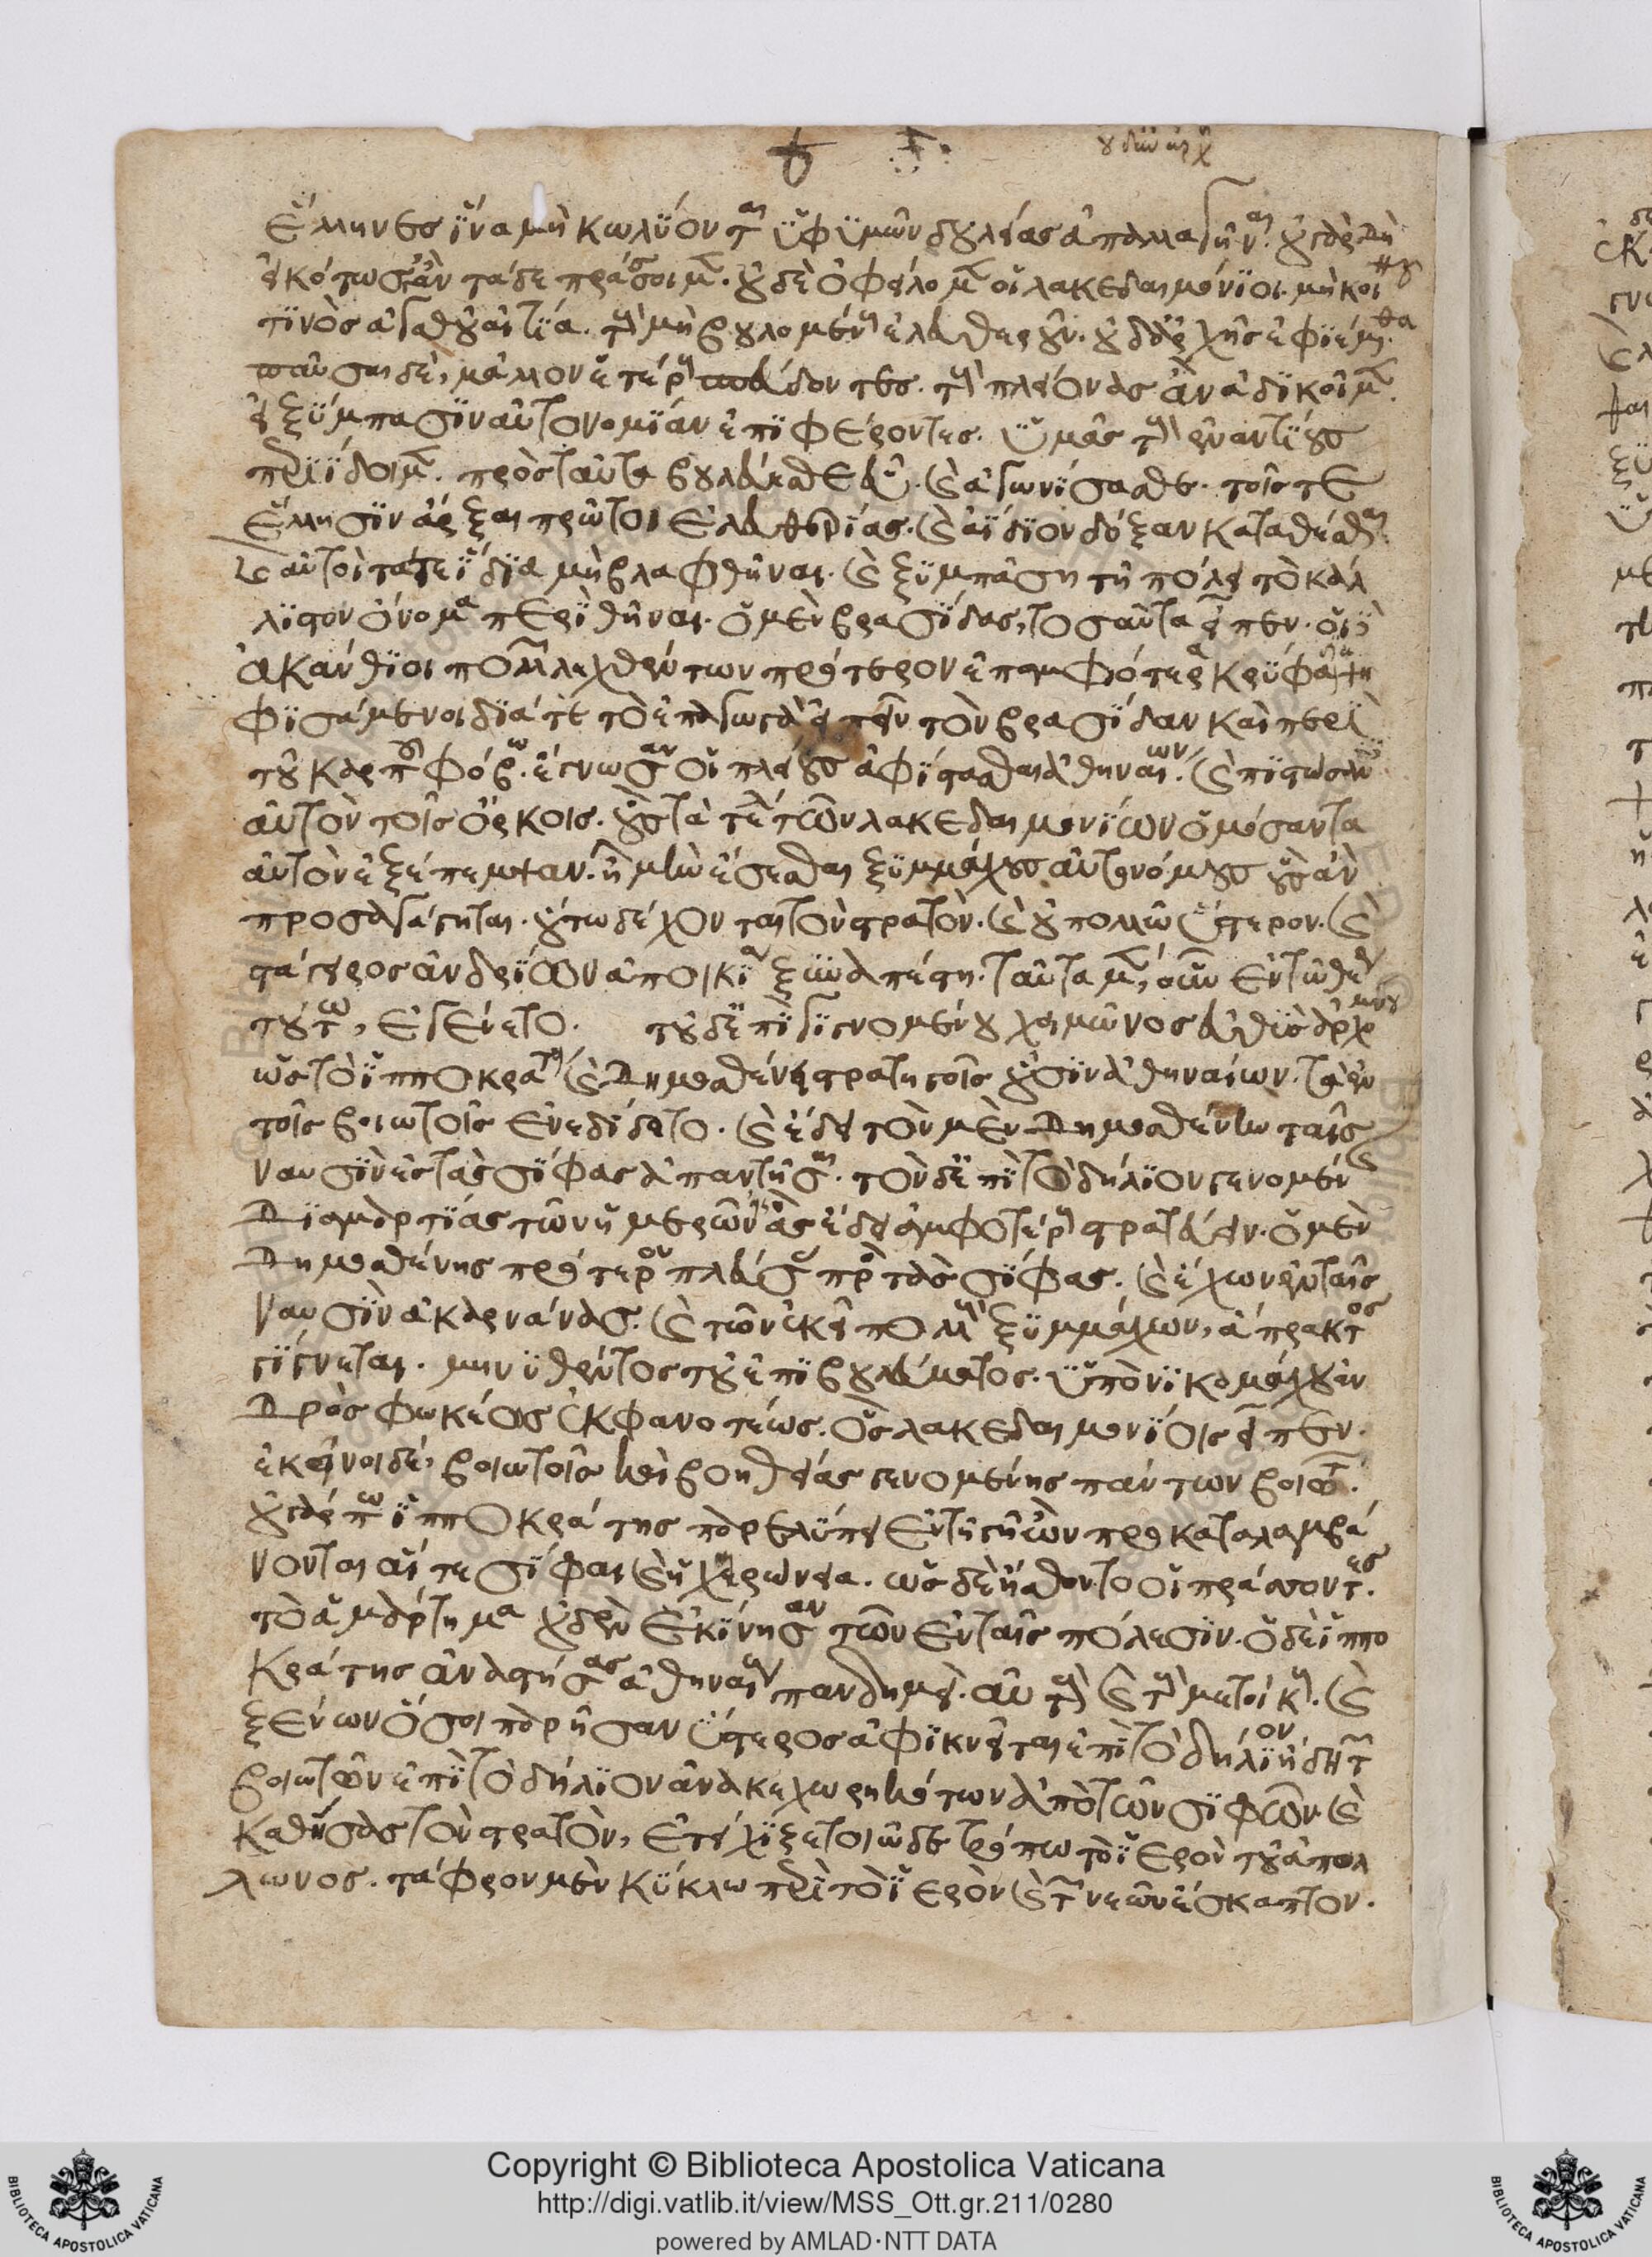 Ἕλληνες ἵνα μὴ κωλύονται ὑφ' ὑμῶν δουλείας ἀπαλλαγῆναι. οὐ γὰρ δὴ
εἰκότως γ' ἂν τάδε πράσσοιμεν. οὐδὲ ὀφείλομεν οἱ λακεδαιμόνιοι μὴ κοινοῦ
τινὸς ἀγαθοῦ αἰτία. τοὺς μὴ βουλομένους ἐλευθεροῦν. οὐδ' ἀρχῆς ἐφιέμεθα
παῦσαι δὲ, μᾶλλον ἑτέρους σπεύδοντες. τοὺς πλείονας ἂν ἀδικοῖμεν.
εἰ ξύμπασιν αὐτονομίαν ἐπιφέροντες. ὑμᾶς τοὺς ἐναντιουμένους
περιΐδοιμεν. πρὸς ταῦτα βουλεύεσθε εὖ. καὶ ἀγωνίσασθε. τοῖς τε
Ἕλλησιν ἄρξαι πρῶτοι ἐλευθερίας. καὶ ἀΐδιον δόξαν καταθέσθαι.
καὶ αὐτοὶ τά τε ἴδια μὴ βλαφθῆναι. καὶ ξυμπάσῃ τῇ πόλει τὸ κάλ
λιστον ὄνομα περιθῆναι. ὁ μὲν βρασίδας, τοσαῦτα εἶπεν. οἱ δὲ
ἀκάνθιοι πολλῶν λεχθέντων πρότερον ἐπ' ἀμφότερα κρύφα ψη
φισάμενοι διά τε τὸ ἐπαγωγὰ εἰπεῖν τὸν βρασίδαν καὶ περὶ
τοῦ καρποῦ φόβῳ. ἔγνωσαν οἱ πλείους ἀφίστασθαι ἀθηναίων. καὶ πιστώσαντες
αὐτὸν τοῖς ὅρκοις. οὓς τὰ τέλη τῶν λακεδαιμονίων ὀμόσαντα
αὐτὸν ἐξέπεμψαν. ἦ μὴν ἔσεσθαι ξυμμάχους αὐτονόμους οὓς ἂν
προσαγάγηται. οὕτω δέχονται τὸν στρατόν. καὶ οὐ πολλῷ ὕστερον. καὶ
στάγειρος ἀνδρίων ἀποικία ξυναπέστη. ταῦτα μὲν οὖν ἐν τῷ θέρει
τούτῳ, ἐγένετο. τοῦ δ' ἐπιγιγνομένου χειμῶνος εὐθὺς ἀρχομένου
ὡς τῷ ἱπποκράτει καὶ Δημοσθένει στρατηγοῖς οὖσιν ἀθηναίων. τὰ ἐν
τοῖς βοιωτοῖς ἐνεδίδοτο. καὶ ἔδει τὸν μὲν Δημοσθένην ταῖς
ναυσὶν ἐς τὰς σίφας ἀπαντῆσαι. τὸν δ' ἐπὶ τὸ δήλιον γενομένης
Διαμαρτίας τῶν ἡμερῶν ἐς ἃς ἔδει ἀμφοτέρους στρατεύειν. ὁ μὲν
Δημοσθένης πρότερον πλεύσας πρὸς τὰς σίφας. καὶ ἔχων ἐν ταῖς
ναυσὶν ἀκαρνάνας. καὶ τῶν ἐκεῖ πολλοὺς ξυμμάχων, ἄπρακτος
γίγνεται. μηνυθέντος τοῦ ἐπιβουλεύματος. ὑπὸ νικομάχου ἀν
Δρὸς φωκέως ἐκ φανοτέως. ὃς λακεδαιμονίοις εἶπεν.
ἐκεῖνοι δὲ, βοιωτοῖς καὶ βοηθείας γενομένης πάντων βοιωτῶν.
οὐ γάρ πω ἱπποκράτης παρελύπει ἐν τῇ γῇ ὢν προκαταλαμβά
νονται αἵ τε σίφαι καὶ ἡ χαιρώνεια. ὡς δὲ ᾔσθοντο οἱ πράσσοντες.
τὸ ἁμάρτημα οὐδὲν ἐκίνησαν τῶν ἐν ταῖς πόλεσιν. ὁ δὲ ἱππο
κράτης ἀναστήσας ἀθηναίους πανδημεὶ. αὐτοὺς καὶ τοὺς μετοίκους. καὶ
ξένων ὅσοι παρῆσαν ὕστερος ἀφικνεῖται ἐπὶ τὸ δήλιον ἤδη τῶν
βοιωτῶν ἐπὶ τὸ δήλιον ἀνακεχωρηκότων ἀπὸ τῶν σιφῶν καὶ
καθίσας τὸν στρατόν, ἐτείχιζε τοιῷδε τρόπῳ τὸ ἱερὸν τοῦ ἀπόλ
λωνος. τάφρον μὲν κύκλῳ περὶ τὸ ἱερὸν καὶ τὸν νεὼν ἔσκαπτον.
Copyright © Biblioteca Apostolica Vaticana
http://digi.vatlib.it/view/MSS_Ott.gr.211/0280
powered by AMLAD·NTT DATA
BIBLIOTECA APOSTOLICA VATICANA
BIBLIOTECA APOSTOLICA VATICANA